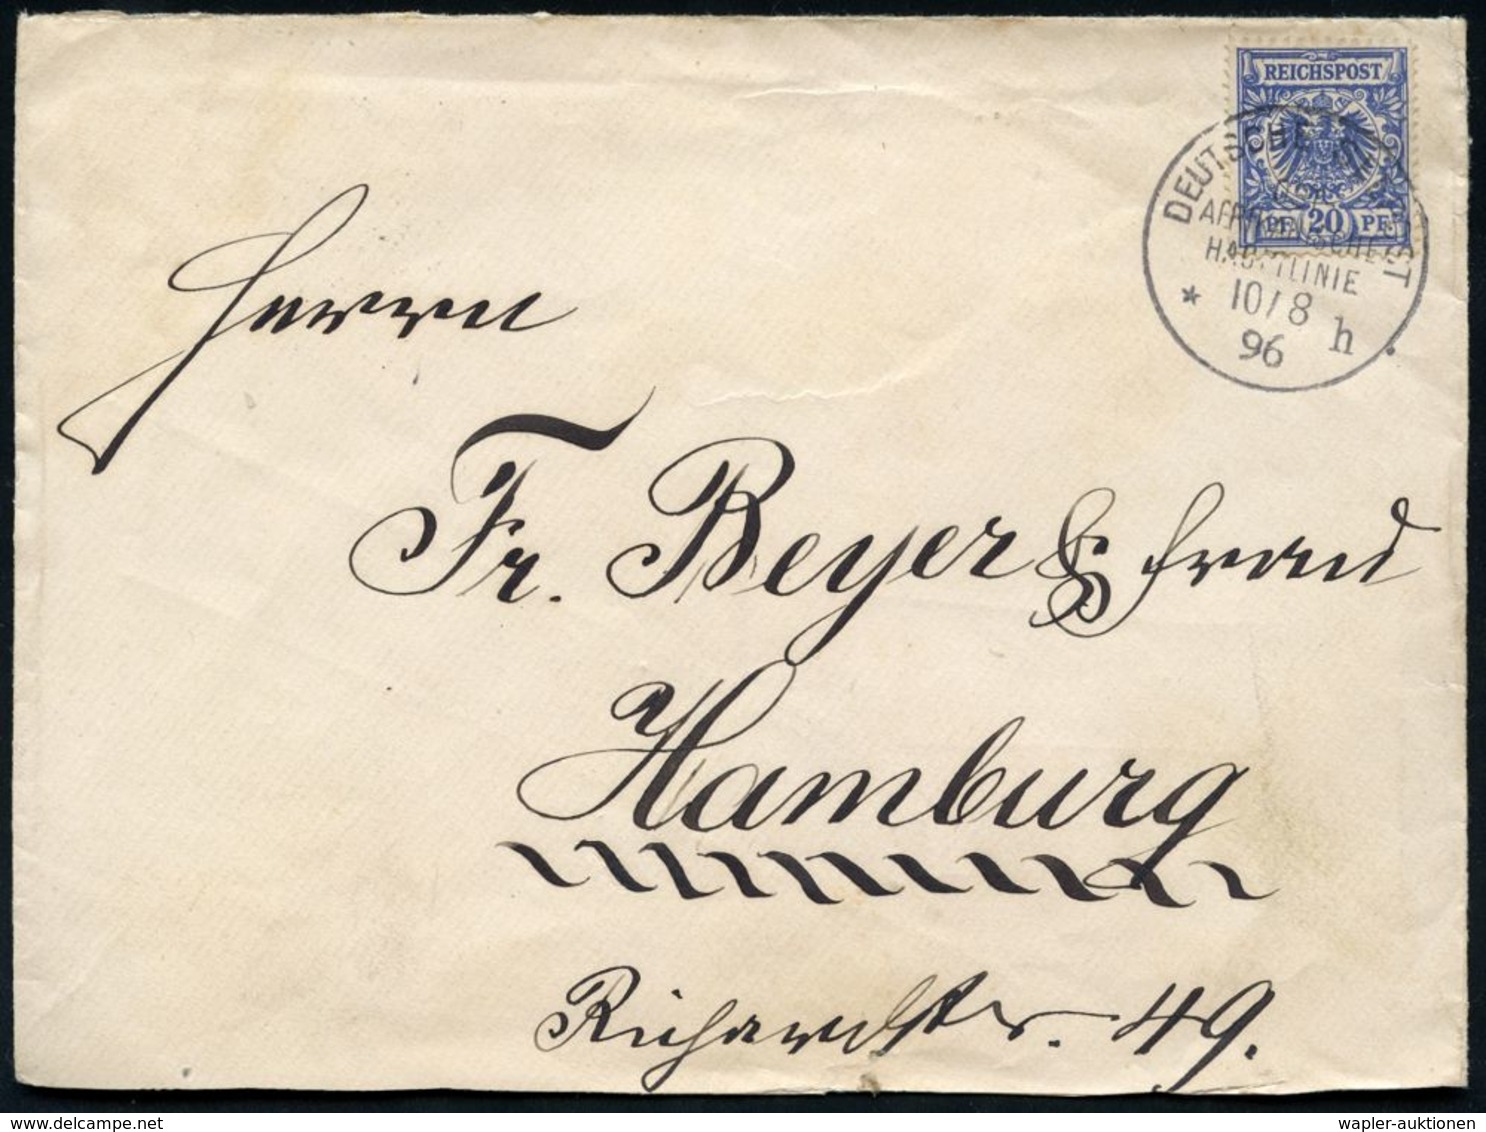 REICHSPOST
PF. 20 PF.
DEUTSCHE SEEPOST
AFRIKANISCHE
HAUPTLINIE
10/8
96 h
Herrn
Fr. Beyer & Frau
Hamburg
Richardstr. 49.
www.delcampe.net
wapler-auktionen